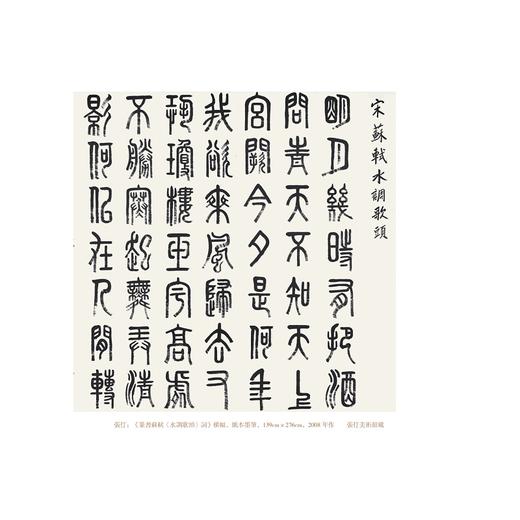 宋蘇軾水調歌頭
明月幾時有把酒
問青天不知天上
宮闕今夕是何年
我欲乘風歸去又
恐瓊樓玉宇高處
不勝寒起舞弄清
影何似在人間轉
張仃：《篆書蘇軾〈水調歌頭〉詞》橫幅，紙本墨筆，139cm×276cm，2008年作　張仃美術館藏